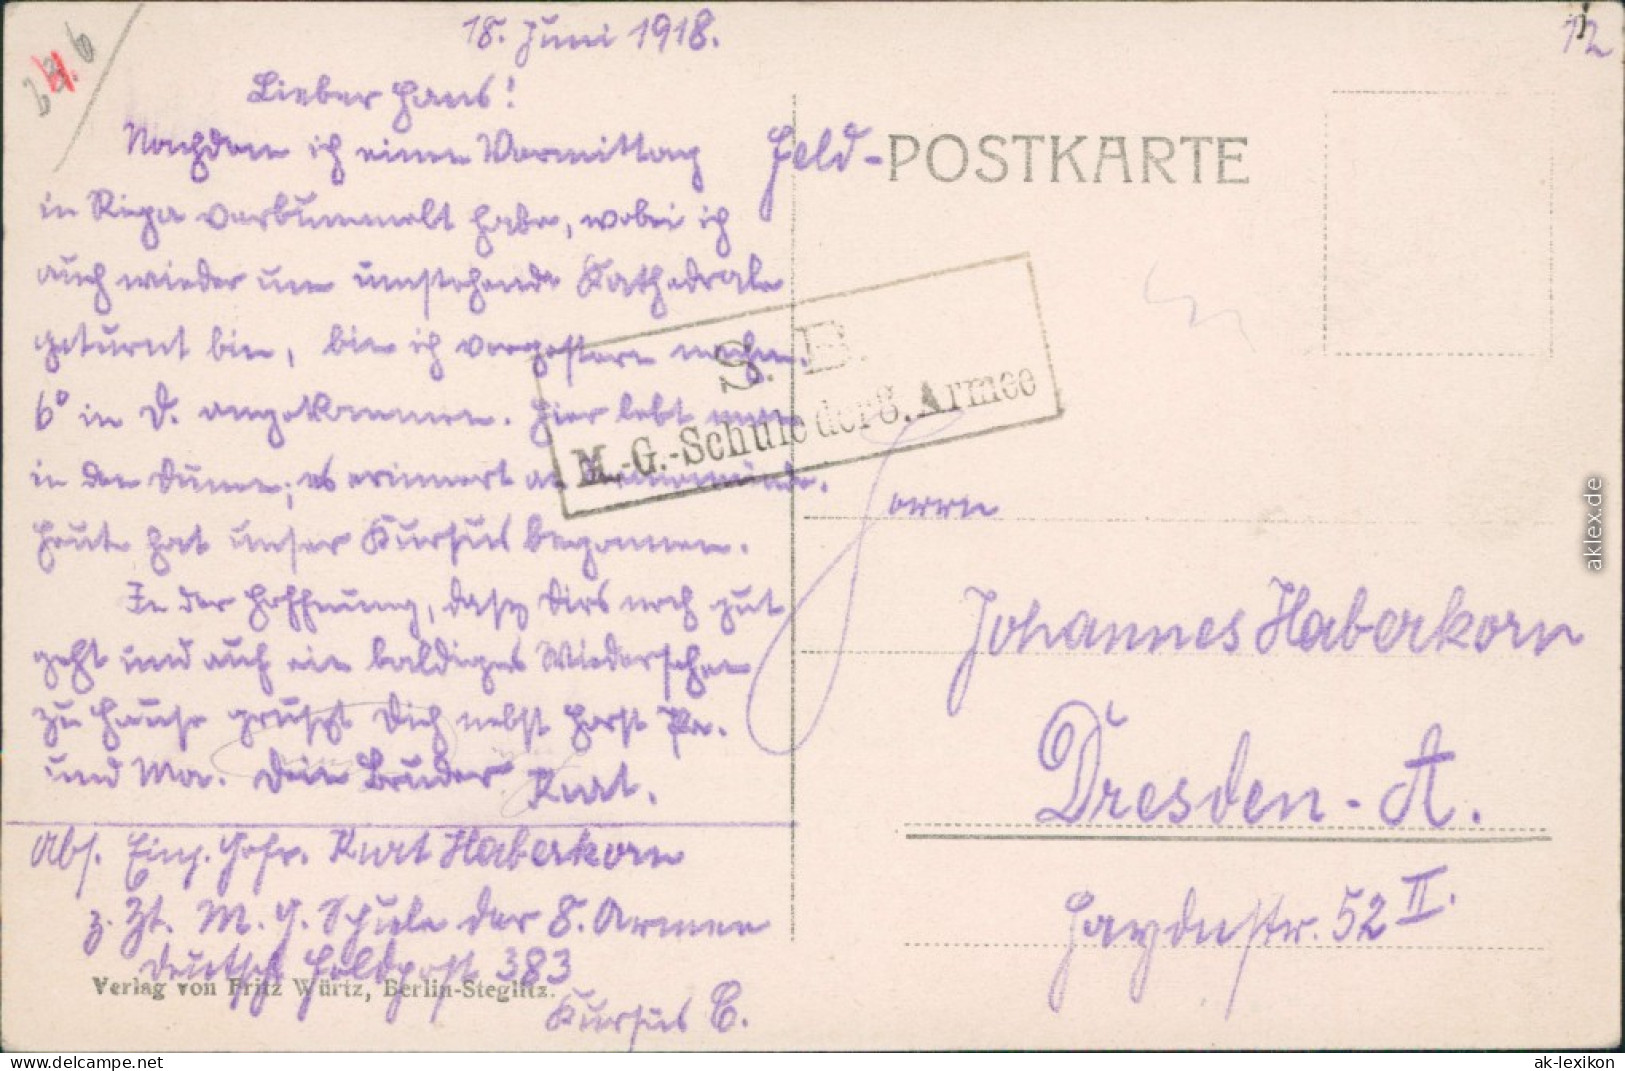 18. Juni 1918.
Lieber Hans!
Nachdem ich einen Vormittag
in Riga verbummelt habe, wobei ich
auch wieder um umstehende Kathedrale
geturnt bin, bin ich vorgestern nachm.
6° in D. angekommen. Hier lebt man
in den Dünen; es erinnert an
Heute hat unser Kursus begonnen.
In der Hoffnung, dass Dirs noch gut
geht und auf ein baldiges Wiedersehen
zu Hause grüsst Dich nebst Horst Pa.
und Ma. Dein Bruder Kurt.
Abs. Einj. Gefr. Kurt Haberkorn
z. Zt. M. G. Schule der 8. Armee
Deutsche Feldpost 383
Kursus C.
Verlag von Fritz Würtz, Berlin-Steglitz.
12
Feld-POSTKARTE
S. B.
M.-G.-Schule der 8. Armee
Herrn
Johannes Haberkorn
Dresden-A.
Haydnstr. 52 II.
aklex.de
www.delcampe.net
ak-lexikon